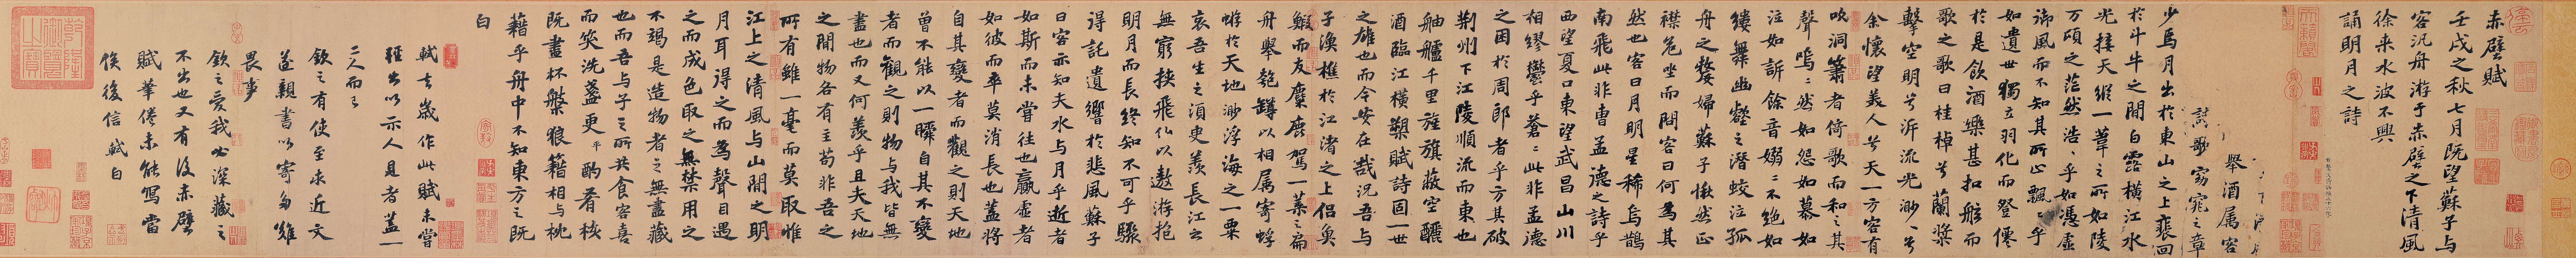 赤壁賦
壬戌之秋七月既望蘇子与
客汎舟游于赤壁之下清風
徐来水波不興
舉酒属客
誦明月之詩
歌窈窕之章
少焉月出於東山之上裴回
於斗牛之間白露横江水
光接天縱一葦之所如陵
万頃之茫然浩〻乎如馮虚
御風而不知其所止飄〻乎
如遺世獨立羽化而登僊
於是飲酒樂甚扣舷而
歌之歌曰桂棹兮蘭槳
擊空明兮泝流光渺〻兮
余懷望美人兮天一方客有
吹洞簫者倚歌而和之其
聲嗚〻然如怨如慕如
泣如訴餘音嫋〻不絶如
縷舞幽壑之潜蛟泣孤
舟之嫠婦蘇子愀然正
襟危坐而問客曰何為其
然也客曰月明星稀烏鵲
南飛此非曹孟德之詩乎
西望夏口東望武昌山川
相繆鬱乎蒼〻此非孟德
之困於周郎者乎方其破
荆州下江陵順流而東也
舳艫千里旌旗蔽空釃
酒臨江横槊賦詩固一世
之雄也而今安在哉况吾与
子漁樵於江渚之上侣魚
鰕而友麋鹿駕一葉之扁
舟舉匏罇以相属寄蜉
蝣於天地渺浮海之一粟
哀吾生之須臾羨長江之
無窮挾飛仙以遨游抱
明月而長終知不可乎驟
得託遺響於悲風蘇子
曰客亦知夫水与月乎逝者
如斯而未嘗往也贏虚者
如彼而卒莫消長也盖將
自其變者而觀之則天地
曾不能以一瞬自其不變
者而觀之則物与我皆無
盡也而又何羨乎且夫天地
之間物各有主苟非吾之
所有雖一毫而莫取惟
江上之清風与山間之明
月耳得之而為聲目遇
之而成色取之無禁用之
不竭是造物者之無盡藏
也而吾与子之所共食客喜
而笑洗盞更酌肴核
既盡杯盤狼藉相与枕
藉乎舟中不知東方之既
白
軾去歲作此賦未嘗
輕出以示人見者盖一
二人而已
欽之有使至求近文
遂親書以寄多難
畏事
欽之愛我必深藏之
不出也又有後赤壁
賦筆倦未能寫當
俟後信軾白